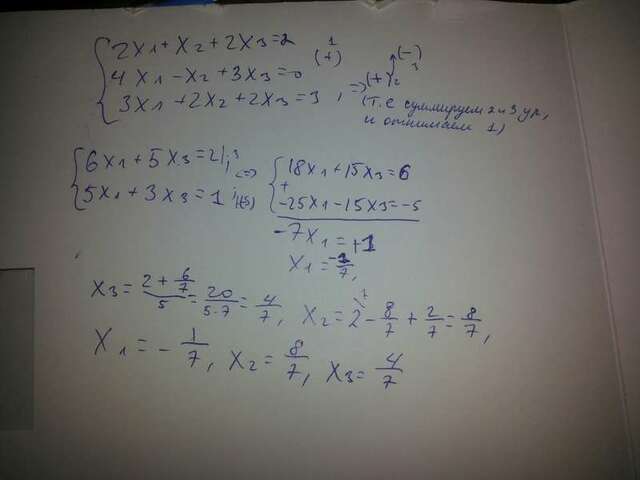 2x1+x2+2x3=2 1 (+) (-) 3
4x1-x2+3x3=0 => (+) 2
3x1+2x2+2x3=3, (т.е суммируем 2и3 ур,
и отнимаем 1)
6x1+5x3=2 |·3 <=> 18x1+15x3=6
+
5x1+3x3=1 |·(-5) -25x1-15x3=-5
-7x1=+1
x1=-1/7,
x3=(2+6/7)/5=20/(5·7)=4/7, x2=2-8/7+2/7=8/7,
x1=-1/7, x2=8/7, x3=4/7